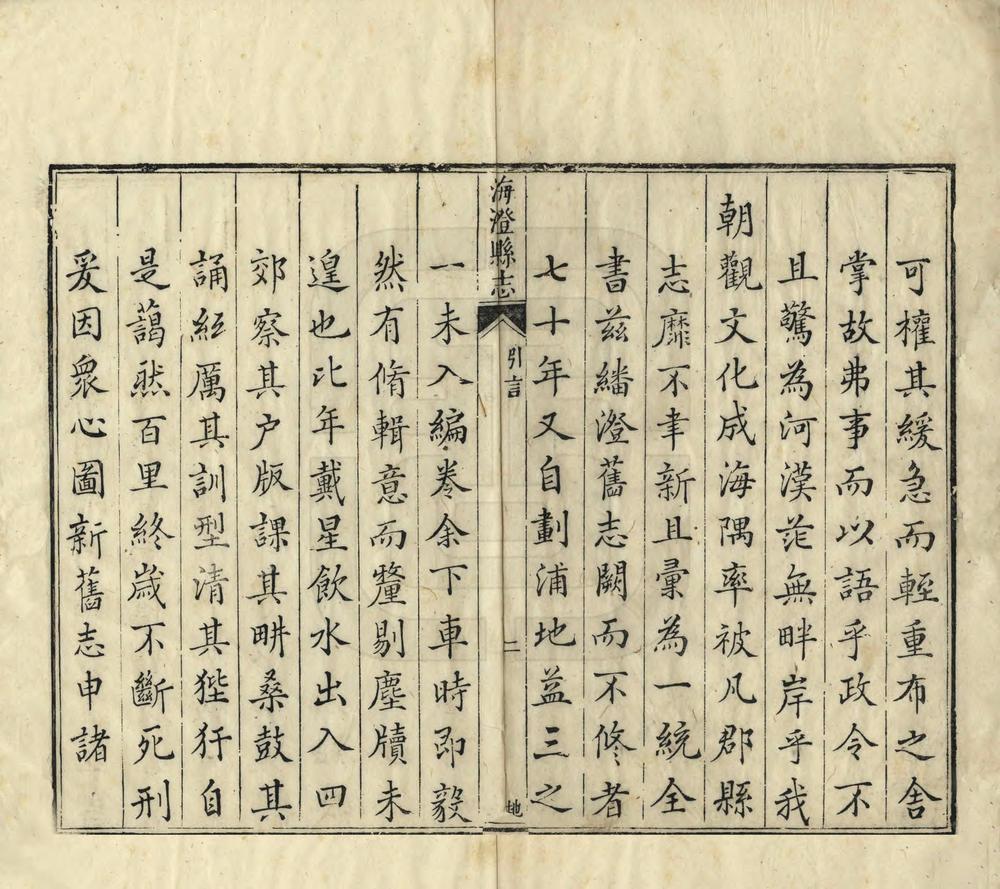 可權其緩急而輕重布之舍
掌故弗事而以語乎政令不
且驚為河漢茫無畔岸乎我
朝觀文化成海隅率被凡郡縣
志靡不聿新且彙為一統全
書茲繙澄舊志闕而不修者
七十年又自劃浦地益三之
海澄縣志
引言
二
地
一未入編卷余下車時即毅
然有脩輯意而釐剔塵牘未
遑也比年戴星飲水出入四
郊察其户版課其畊桑鼓其
誦絃厲其訓型清其狴犴自
是藹然百里終歲不斷死刑
爰因衆心圖新舊志申諸